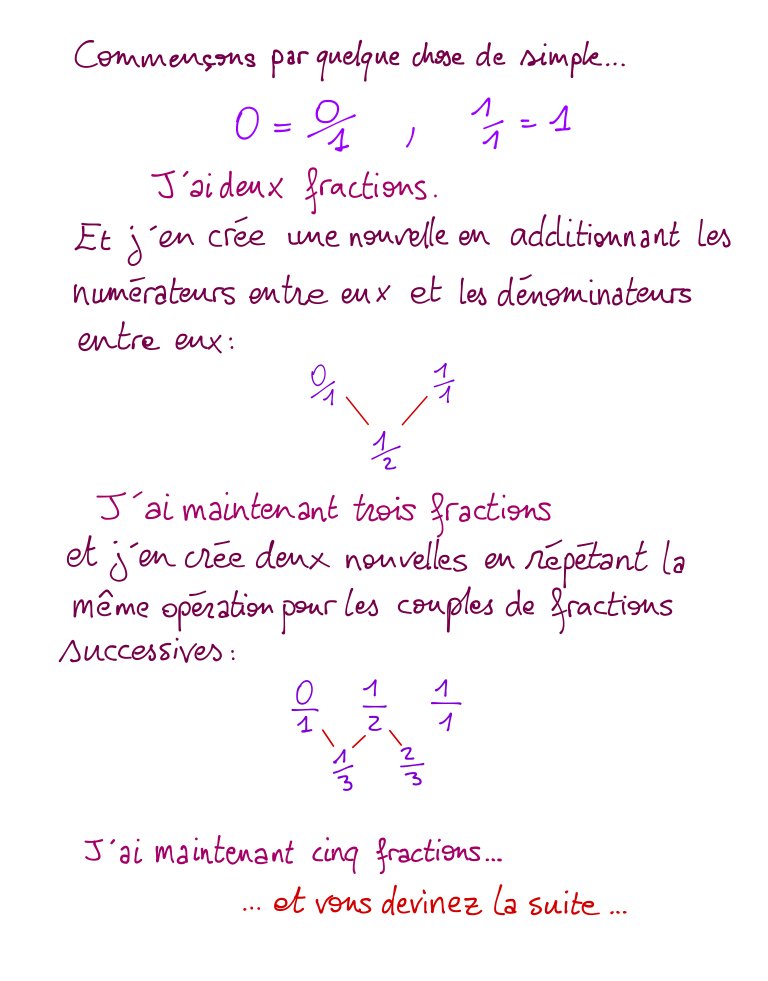 Commençons par quelque chose de simple...
0 = 0/1 , 1/1 = 1
J'ai deux fractions.
Et j'en crée une nouvelle en additionnant les
numérateurs entre eux et les dénominateurs
entre eux :
0/1 1/1
1/2
J'ai maintenant trois fractions
et j'en crée deux nouvelles en répétant la
même opération pour les couples de fractions
successives :
0/1 1/2 1/1
1/3 2/3
J'ai maintenant cinq fractions...
... et vous devinez la suite ...